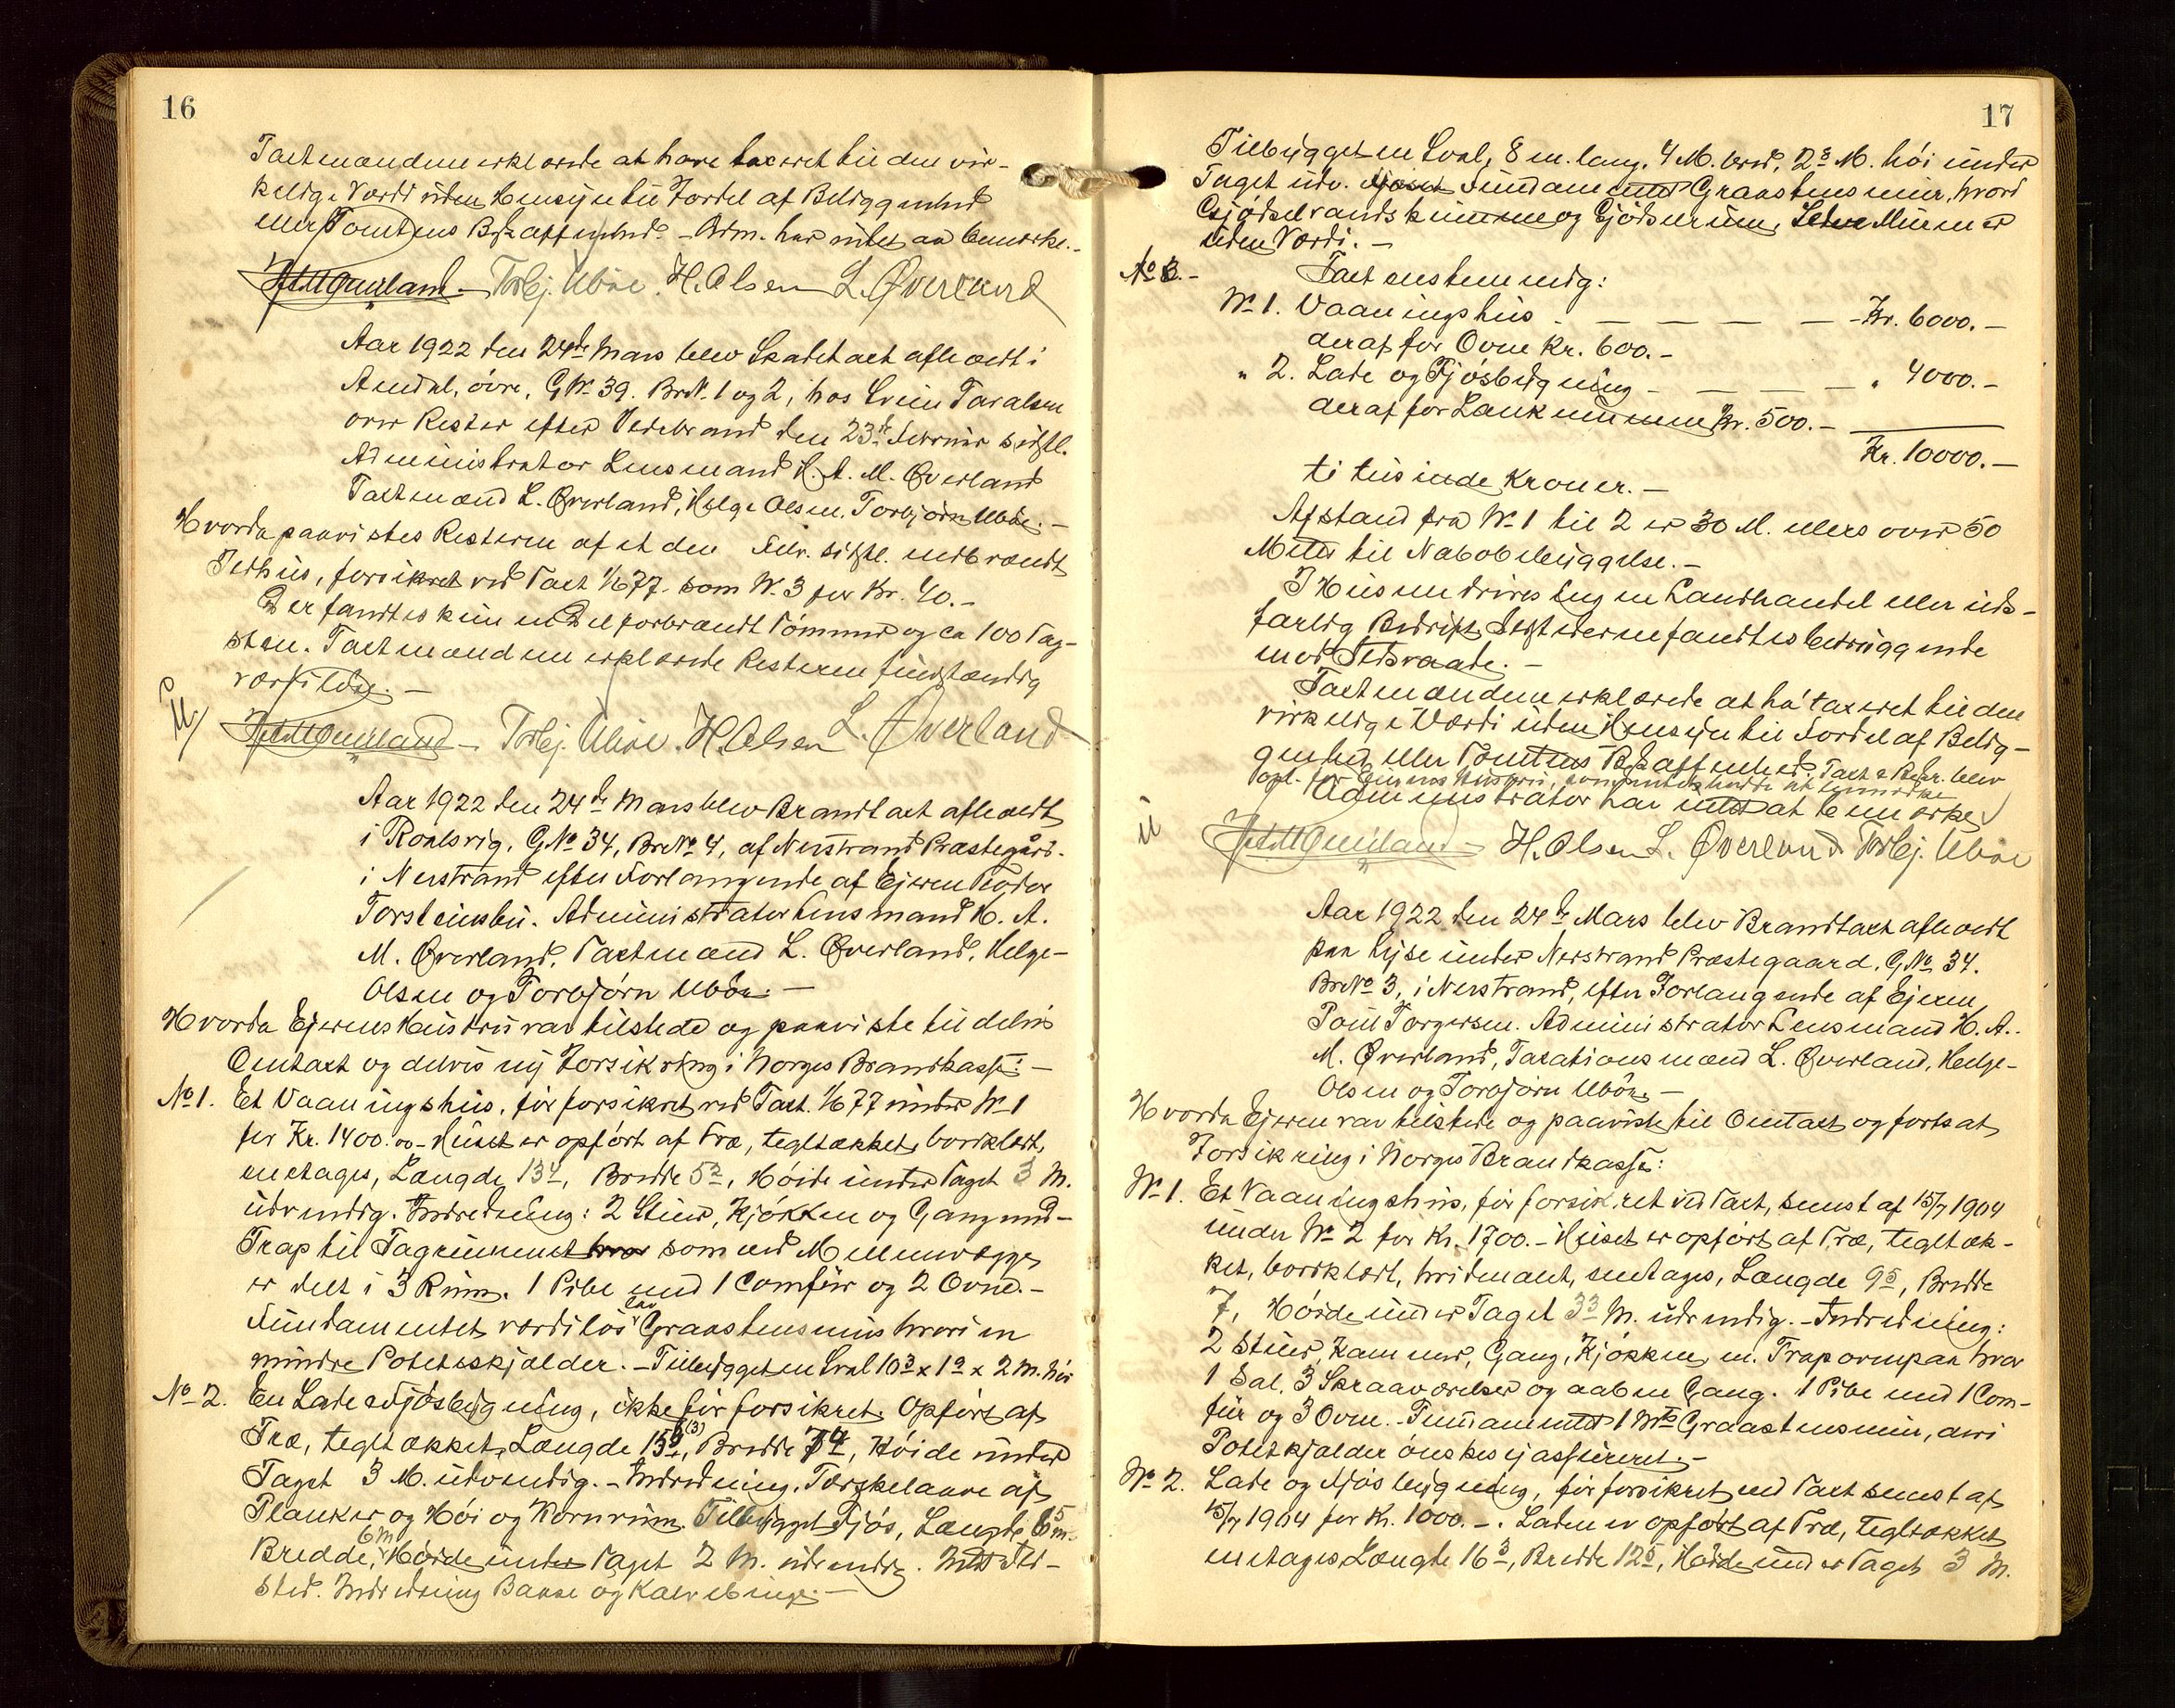 16
Taxtmændene erklærede at have taxeret til den vir-
kelige Værdi uden Hensyn til Fordel af Beliggenhed
eller Tomtens Beskaffenhed. - Adm. har intet at bemærke. -
Torbj. Ubøe. H. Olsen L. Øverland
Aar 1922 den 24de Mars blev Skadetaxt afholdt i
øvre, G.No 39. BrN. 1 og 2, hos
over Rester efter den 23de Februar sidstl.
Administrator Lensmand H. A. M. Øverland
Taxtmænd L. Øverland, Helge Olsen, Torbjørn Ubøe. -
Hvorda paavistes Resterne af et den Febr. sidstl. nedbrændt
Ildhus, forsikret ved Taxt 1/6 77. som No 3 for Kr. 40. -
Der fandtes kun en Del forbrændt Tømmer og ca 100 Tag-
sten. Taxtmændene erklærede Resterne fuldstændig
værdiløse. -
Torbj. Ubøe. H. Olsen L. Øverland
Aar 1922 den 24de Mars blev Brandtaxt afholdt
i Roalsvig, G.No 34, BrNo 4, af Nerstrand Præstegård.
i Nerstrand efter Forlangende af Ejeren Peder
Torsteinsbu. Administrator Lensmand H. A.
M. Øverland. Taxtmænd L. Øverland, Helge-
Olsen og Torbjørn Ubøe. -
Hvorda Ejerens Hustru var tilstede og paaviste til delvis
Omtaxt og delvis ny Forsikring i Norges Brandkasse: -
No 1. Et Vaaningshus, før forsikret ved Taxt. 1/6 77 under No 1
for Kr. 1400.00 - Huset er opført af Træ, tegltækket, bordklædt,
enetages, Længde 13 4, Bredde 5 2, Høide under Taget 3 M.
udvendig. Indredning: 2 Stuer, Kjøkken og Gang med-
Trap til Tagrummet som ved Mellemvægge
er delt i 3 Rum. 1 Pibe med 1 Comfür og 2 Ovne. -
Fundamentet værdiløs lav Graastensmur hvori en
mindre Potetskjælder. - Tilbygget en Sval 10 3 x 1 2 x 2 M. høi
No 2. En Lade & Fjøsbygning, ikke før forsikret. Opført af
Træ, tegltækket, Længde 15 (3), Bredde 7 4, Høide under
Taget 3 M. udvendig. - Indredning. Tærskelaave af
Planker og Høi og Kornrum. Tilbygget Fjøs, Længde 6 5 m.
Bredde, 6 m Høide under Taget 2 M. udvendig.
sted. Indredning Baase og Kalvebinge. -
17
Tilbygget en Sval, 8 m. lang, 4 M. bred, 2 3 M. høi under
Taget udv. Fundamentet Graastensmur, hvori
Gjødselvandskumme og Gjødserum, Muren er
uden Værdi. -
No 3. - Taxt enstemmig:
No 1. Vaaningshus - - - - - Kr. 6000. -
deraf for Ovne Kr. 600. -
" 2. Lade og Fjøsbygning - - - - " 4000. -
deraf for Kr. 500. -
Kr. 10000. -
ti tusinde Kroner. -
Afstand fra No 1 til 2 er 30 M. ellers over 50
Meter til Nabobebyggelse. -
I Husene drives ingen Landhandel eller ild-
farlig Bedrift. Ildstederne fandtes betryggende
mod Ildsvaade. -
Taxtmændene erklærede at ha' taxeret til den
virkelige Værdi uden Hensyn til Fordel af Belig-
genhed eller Tomtens Beskaffenhed. Taxt & Beskr. blev
opl. for Eierens Hustru, som intet havde at bemærke
Administrator har intet at bemærke
H. Olsen L. Øverland Torbj. Ubøe
Aar 1922 den 24de Mars blev Brandtaxt afholdt
paa Lyse under Nerstrand Præstegaard, G.No 34.
BrNo 3, i Nerstrand, efter Forlangende af Ejeren,
Poul Torgersen. Administrator Lensmand H. A.
M. Øverland, Taxationsmænd L. Øverland, Helge-
Olsen og Torbjørn Ubøe. -
Hvorda Ejeren var tilstede og paaviste til Omtaxt og fortsat
Forsikring i Norges Brandkasse:
No 1. Et Vaaningshus, før forsikret ved Taxt, senest af 15/7 1904
under No 2 for Kr. 1700. - Huset er opført af Træ, tegltæk-
ket, bordklædt, hvidmalt, enetages, Længde 9 5, Bredde
7, Høide under Taget 3 3 M. udvendig. - Indredning:
2 Stuer, Kammer, Gang, Kjøkken, m. Trap ovenpaa hvor
1 Sal, 3 Skraaværelser og aaben Gang. 1 Pibe med 1 Com-
für og 3 Ovne. - Fundamentet 1 Mtr Graastensmur, deri
Potetkjælder ønskes ej assureret. -
No 2. Lade og Fjøsbygning, før forsikret ved Taxt senest af
15/7 1904 for Kr. 1000. -. Laden er opført af Træ, tegltækket
enetages Længde 16 3, Bredde 12 5, Høide under Taget 3 M.